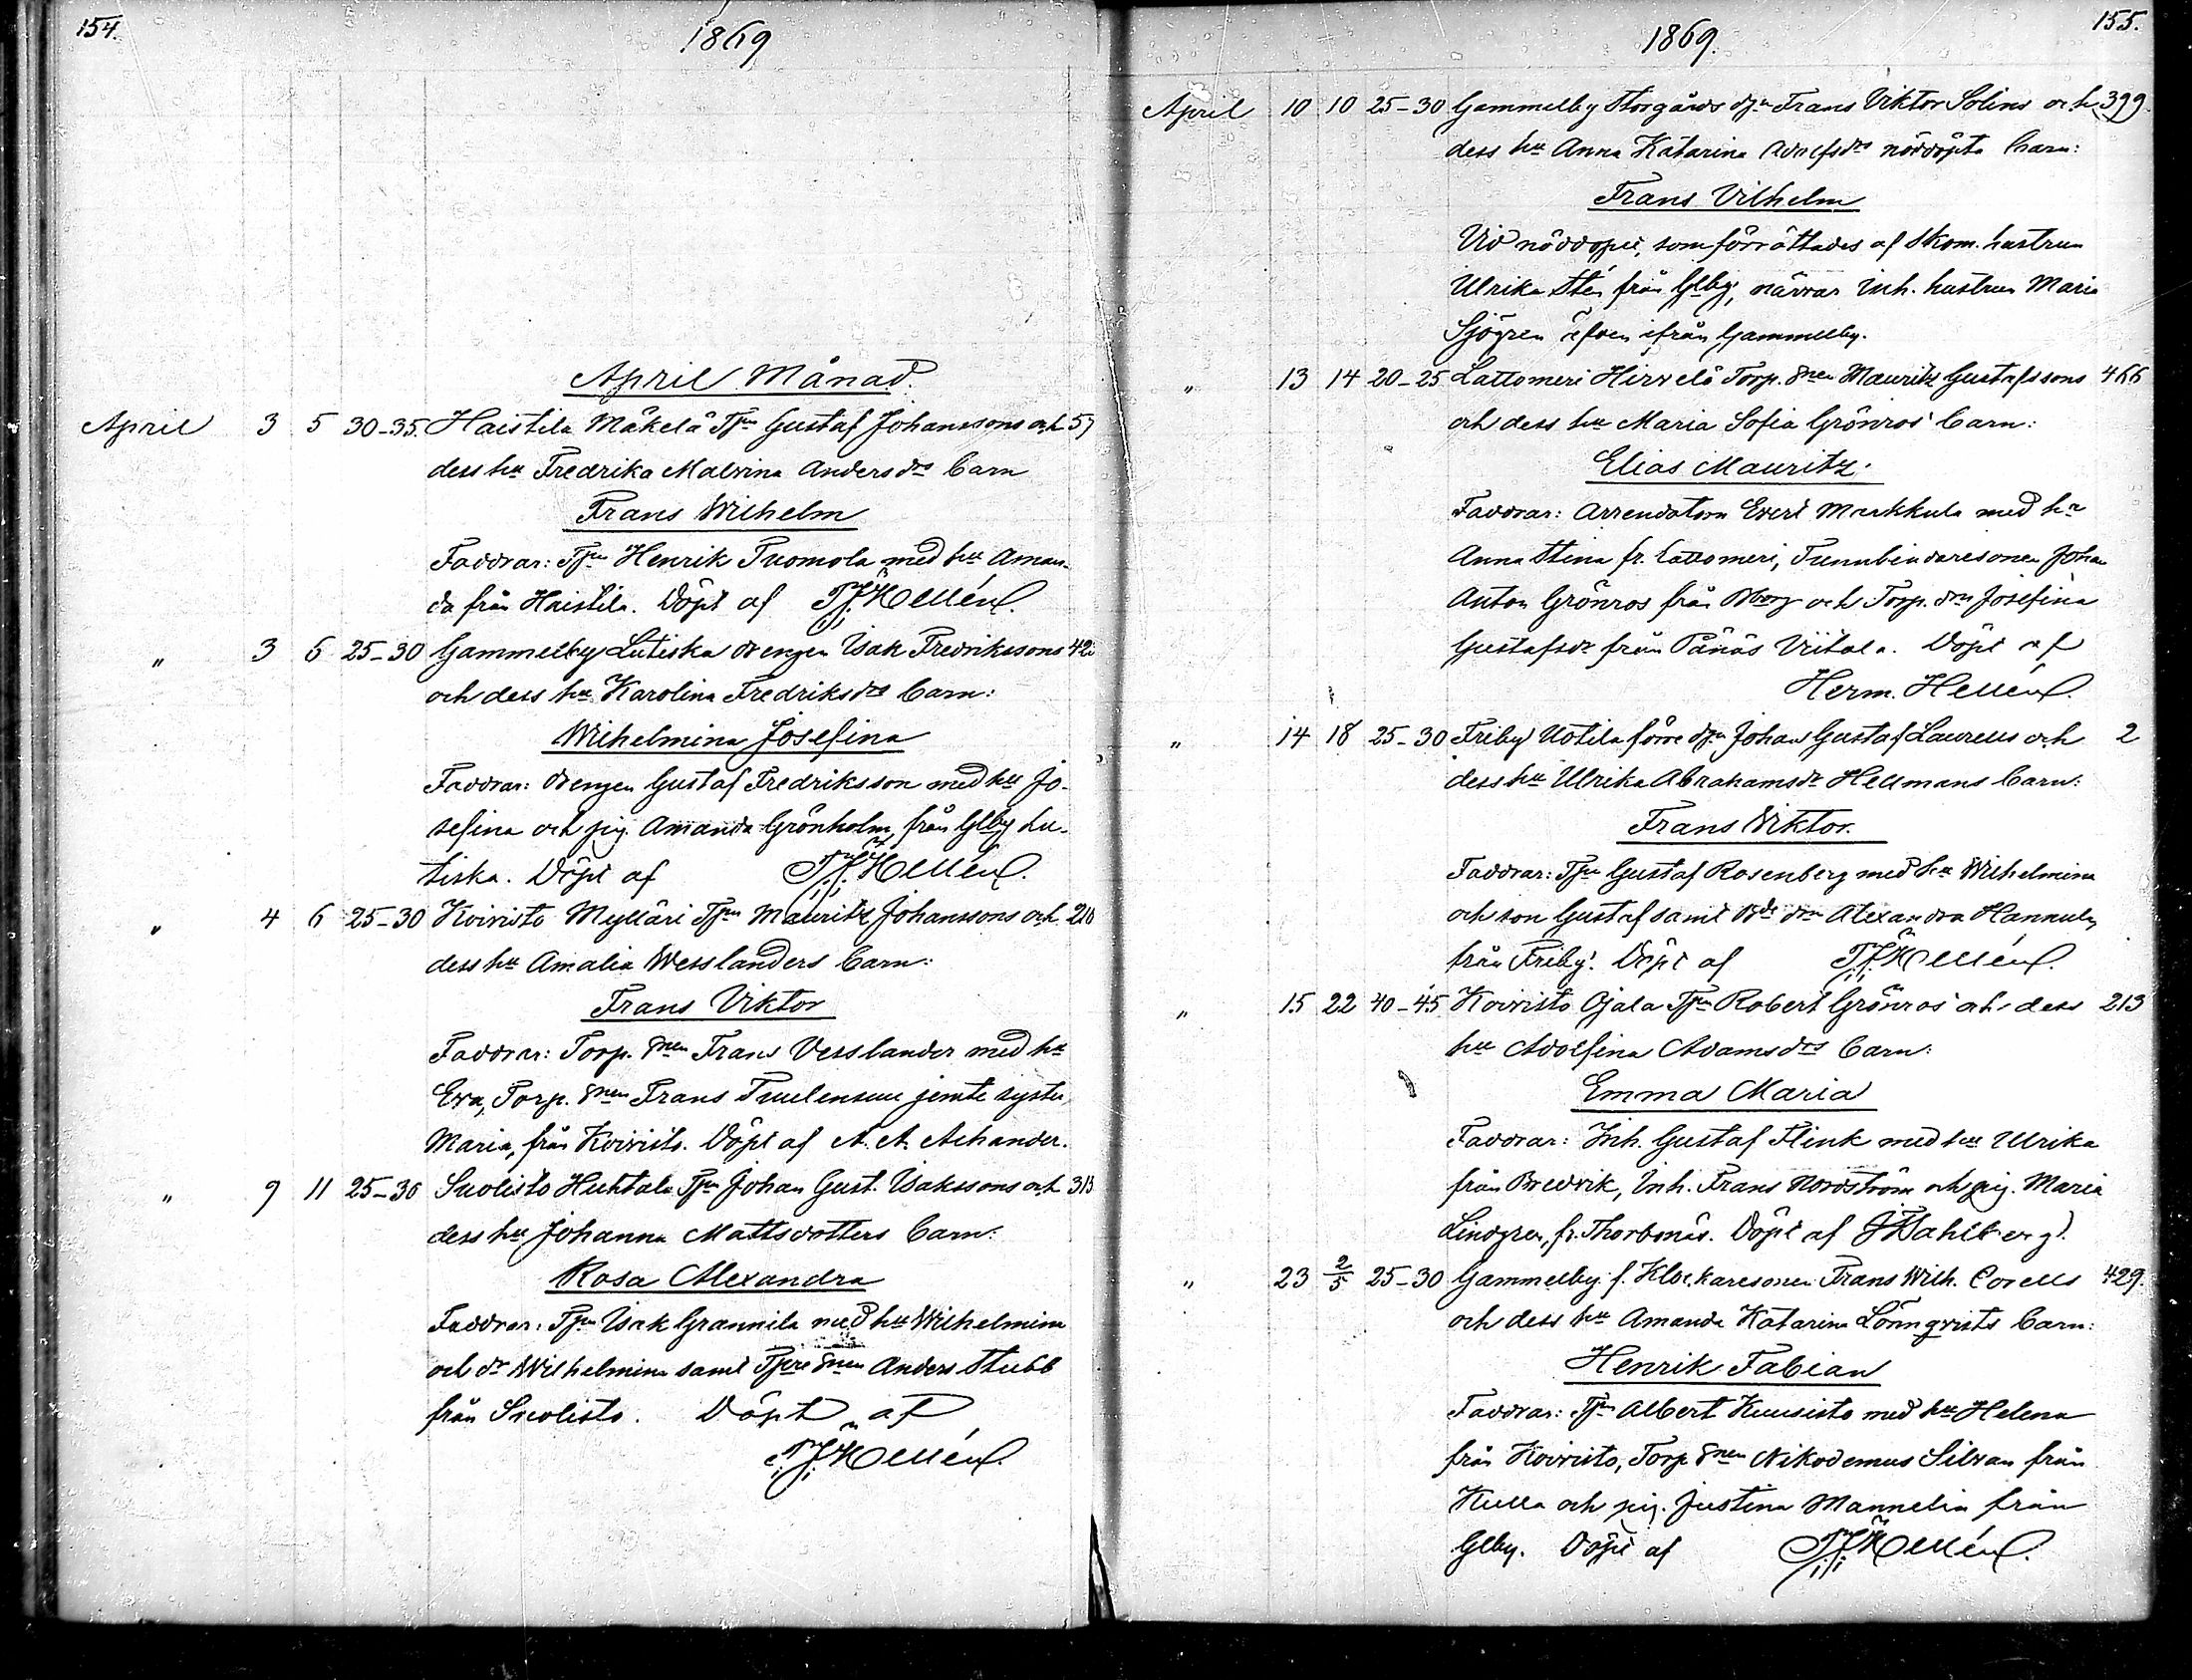 154.
1869
April Månad.
April 3 5 30-35. Haistila Mäkelä Tjn Gustaf Johanssons och 57
dess hu Fredrika Malvina Andersdrs barn
Frans Wilhelm
Faddrar: Tjn Henrik Tuomola med hu Aman-
da från Haistila. Döpt af T.J. Hellén.
" 3 6 25-30 Gammelby Lutiska drengen Isak Fredrikssons 42
och dess hu Karolina Fredriksdrs barn:
Wilhelmina Josefina
Faddrar: drengen Gustaf Fredriksson med hu Jo-
sefina och pig. Amanda Grönholm, från Glby Lu-
tiska. Döpt af T.J. Hellén.
" 4 6 25-30 Koivisto Mylläri Tjn Mauritz Johanssons och 210
dess hu Amalia Wesslanders barn:
Frans Viktor
Faddrar: Torp. snen Frans Vesslander med hu
Eva, Torp. snen Frans jemte syster
Maria, från Koivisto. Döpt af A. A. Achander.
" 9 11 25-30 Suolisto Huhtala Tjn Johan Gust. Isakssons och 313
dess hu Johanna Mattsdotters barn:
Rosa Alexandra
Faddrar: Tjn Isak Grannila med hu Wilhelmina
och dr Wilhelmina samt snen Anders Stubb
från Suolisto. Döpt af
T.J. Hellén.
155.
1869.
April 10 10 25-30 Gammelby Storgårds djn Frans Viktor Solins och 399.
dess hu Anna Katarina Adolfsdrs nöddöpta barn:
Frans Vilhelm
Vid nöddopet, som förrättades af Skom. hustrun
Ulrika Stén från Glby, närvar Inh. hustrun Maria
Sjögren äfven ifrån Gammelby.
" 13 14 20-25 Lattomeri Hirvelä Torp. snen Mauritz Gustafssons 466
och dess hu Maria Sofia Grönros' barn:
Elias Mauritz.
Faddrar: Arrendatorn Evert Markkula med hu
Anna Stina fr. Lattomeri, Tunnbindaresonen Johan
Anton Grönros från Bborg och Torp. drn Josefina
Gustafsdr från Pänäs Viitala. Döpt af
Herm. Hellén.
" 14 18 25-30 Friby Uotila förre djn Johan Gustaf Laurells och 2
dess hu Ulrika Abrahamsdr Hellmans barn:
Frans Viktor.
Faddrar: Tjn Gustaf Rosenberg med hu Wilhelmina
och son Gustaf samt drn Alexandra Hannula,
från Friby. Döpt af T.J. Hellén.
" 15 22 40-45 Koivisto Ojala Tjn Robert Grönros' och dess 213
hu Adolfina Adamsdrs barn:
Emma Maria
Faddrar: Inh. Gustaf Flink med hu Ulrika
från Bredvik, Inh. Frans Nordström och pig. Maria
Lindgren, fr. Thorbonäs. Döpt af J. Dahlberg.
" 23 2/5 25-30 Gammelby f. Klockaresonen Frans Wilh. Corells 429.
och dess hu Amanda Katarina Lönnqvists barn:
Henrik Fabian
Faddrar: Tjn Albert Kuusisto med hu Helena
från Koivisto, Torp. snen Nikodemus Silvan från
Kulla och pig. Justina Mannelin från
Glby. Döpt af T.J. Hellén.